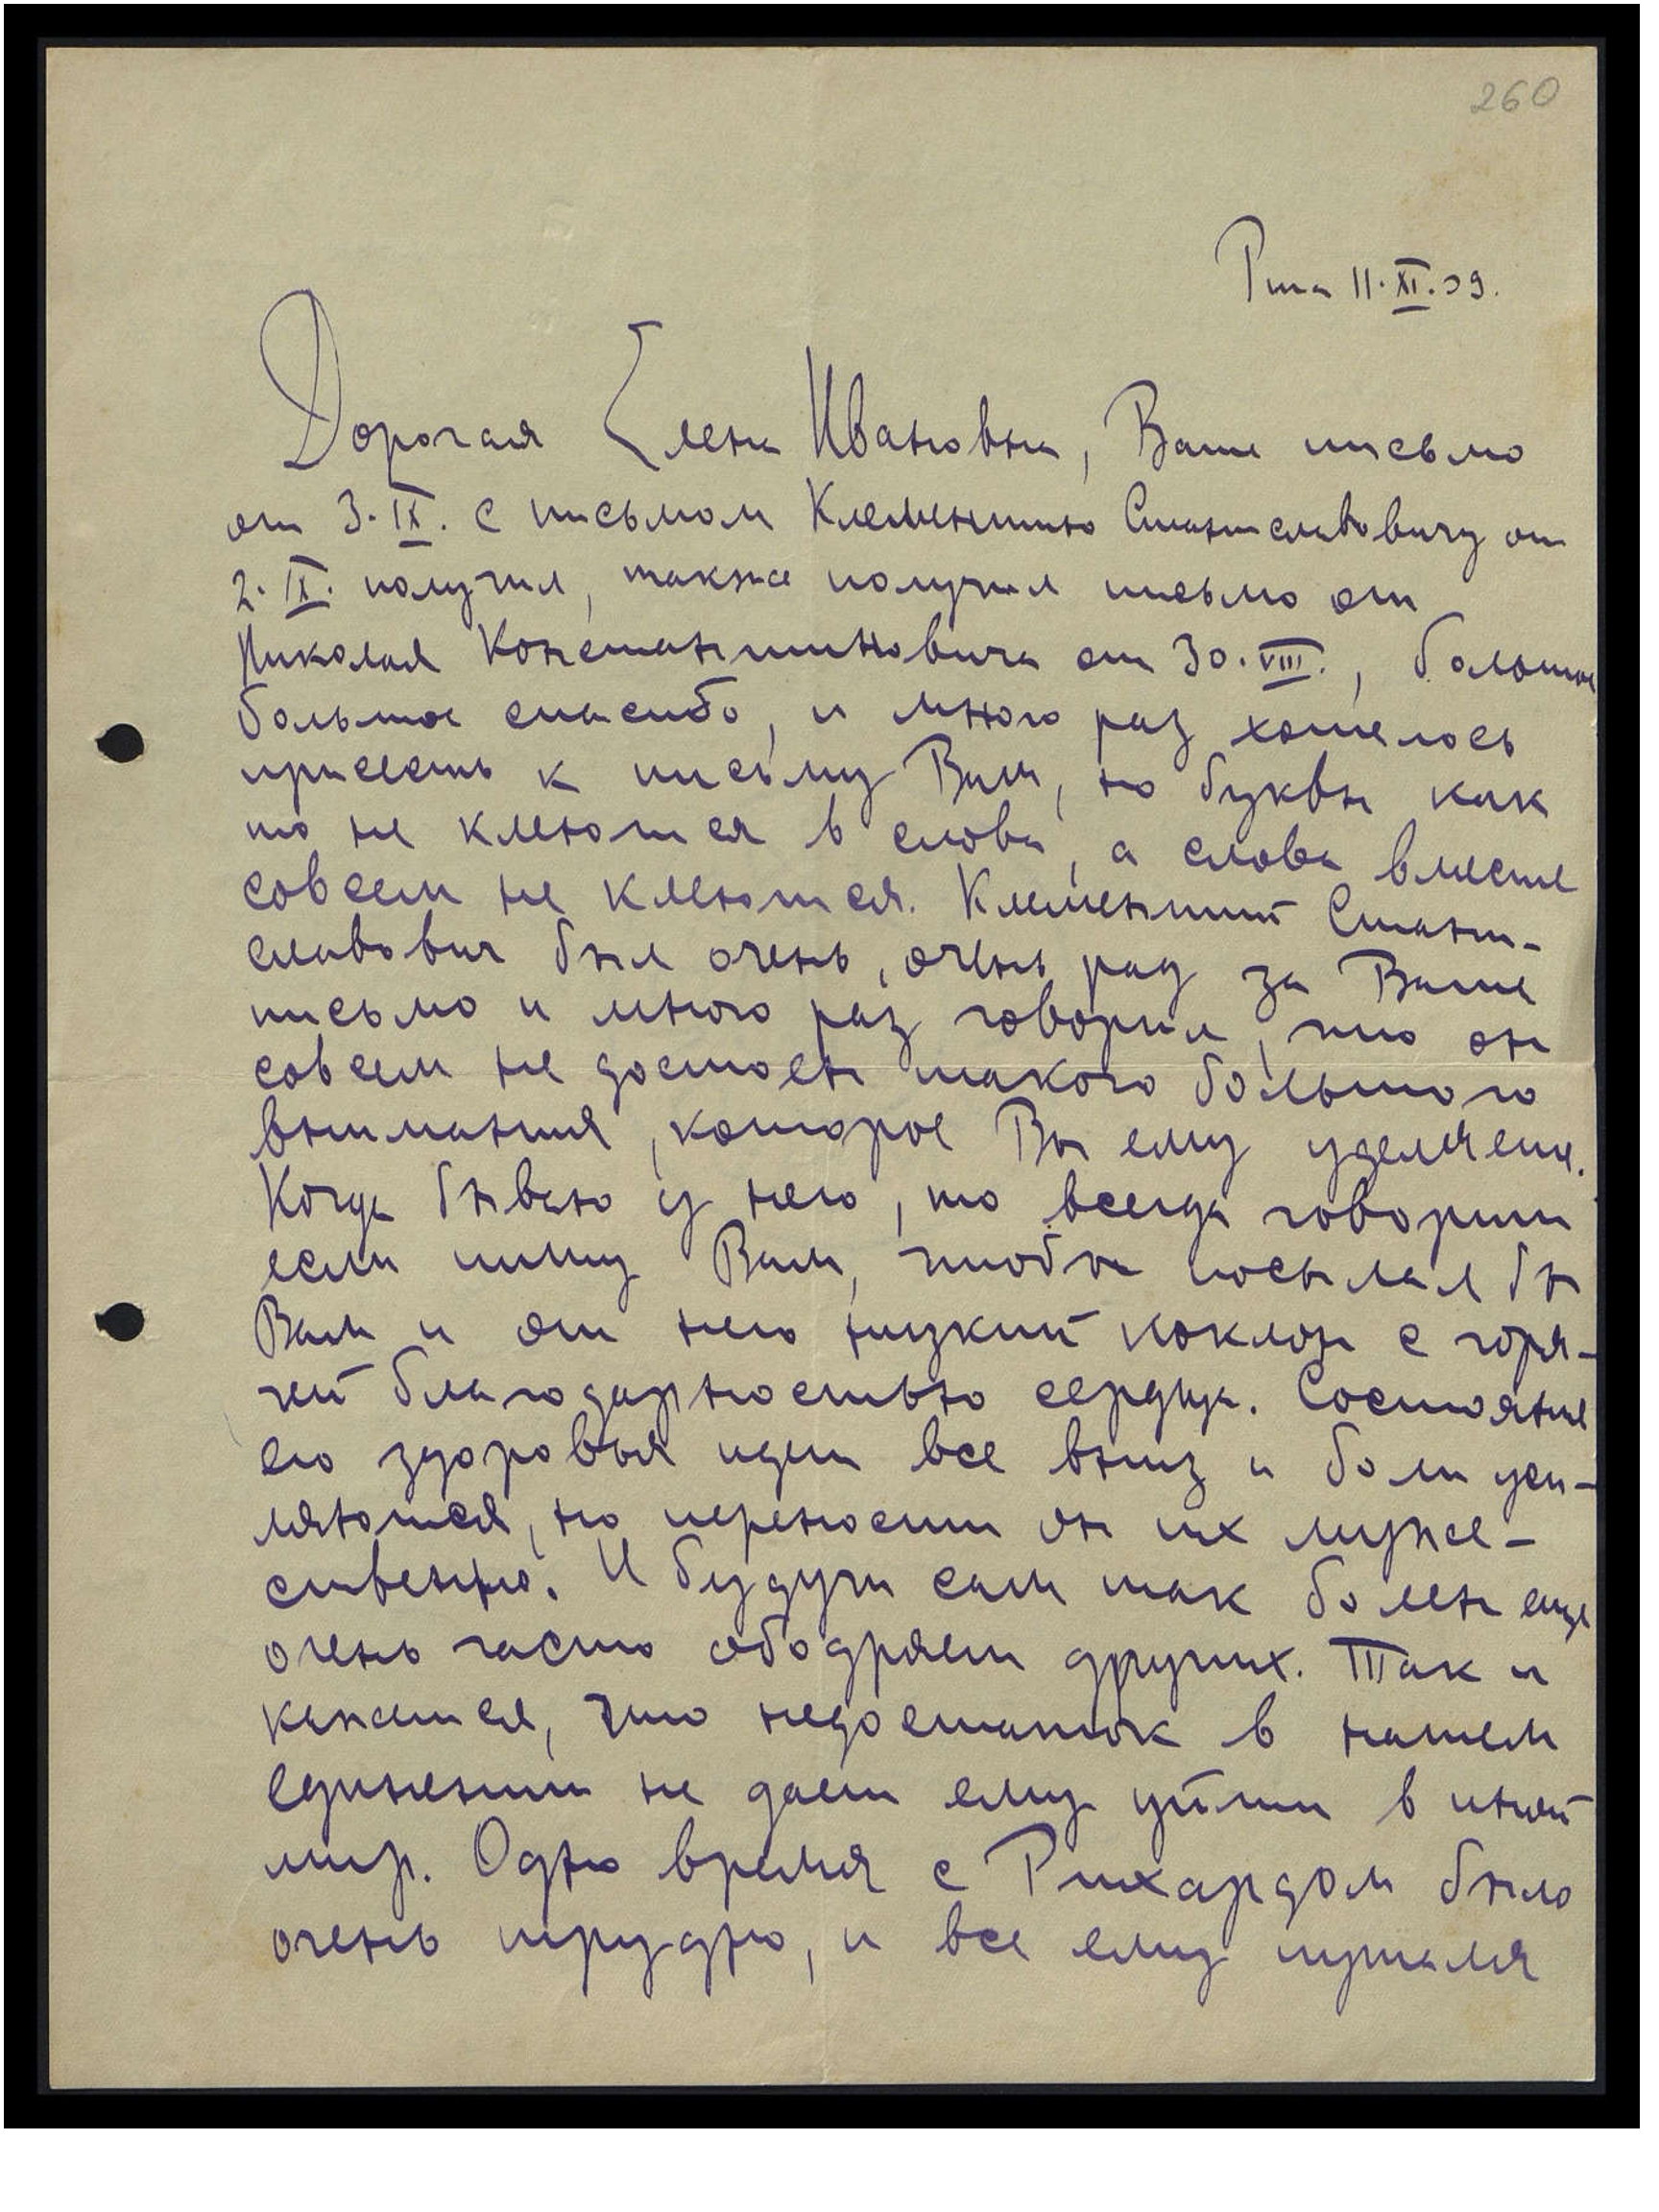 260
Рига 11.XI.39.
Дорогая Елена Ивановна, Ваше письмо
от 3.IX. с письмом Клементию Станиславовичу от
2.IX. получил, также получил письмо от
Николая Константиновича от 30.VIII., большое
большое спасибо, и много раз хотелось
присесть к письму Вам, но буквы как
то не клеются в слова, а слова вместе
совсем не клеются. Клементий Стани-
славович был очень, очень рад за Ваше
письмо и много раз говорил, что он
совсем не достоен такого большого
внимания, которое Вы ему уделяете.
Когда бываю у него, то всегда говорит
если пишу Вам, чтобы посылал бы
Вам и от него низкий поклон с горя-
чей благодарностью сердца. Состояние
его здоровья идет все вниз и боли уси-
ляются, но переносит он их муже-
ственно. И будучи сам так болен еще
очень часто ободряет других. Так и
кажется, что недостаток в нашем
единении не дает ему уйти в иной
мир. Одно время с Рихардом было
очень трудно, и все ему путаля